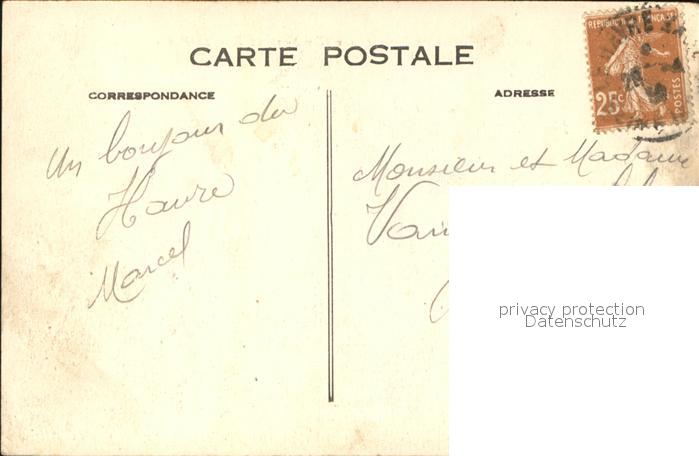 CARTE POSTALE
CORRESPONDANCE
ADRESSE
REPUBLIQUE FRANÇAISE
25c
POSTES
Un bonjour du
Havre
Marcel
Monsieur et Madame
privacy protection
Datenschutz